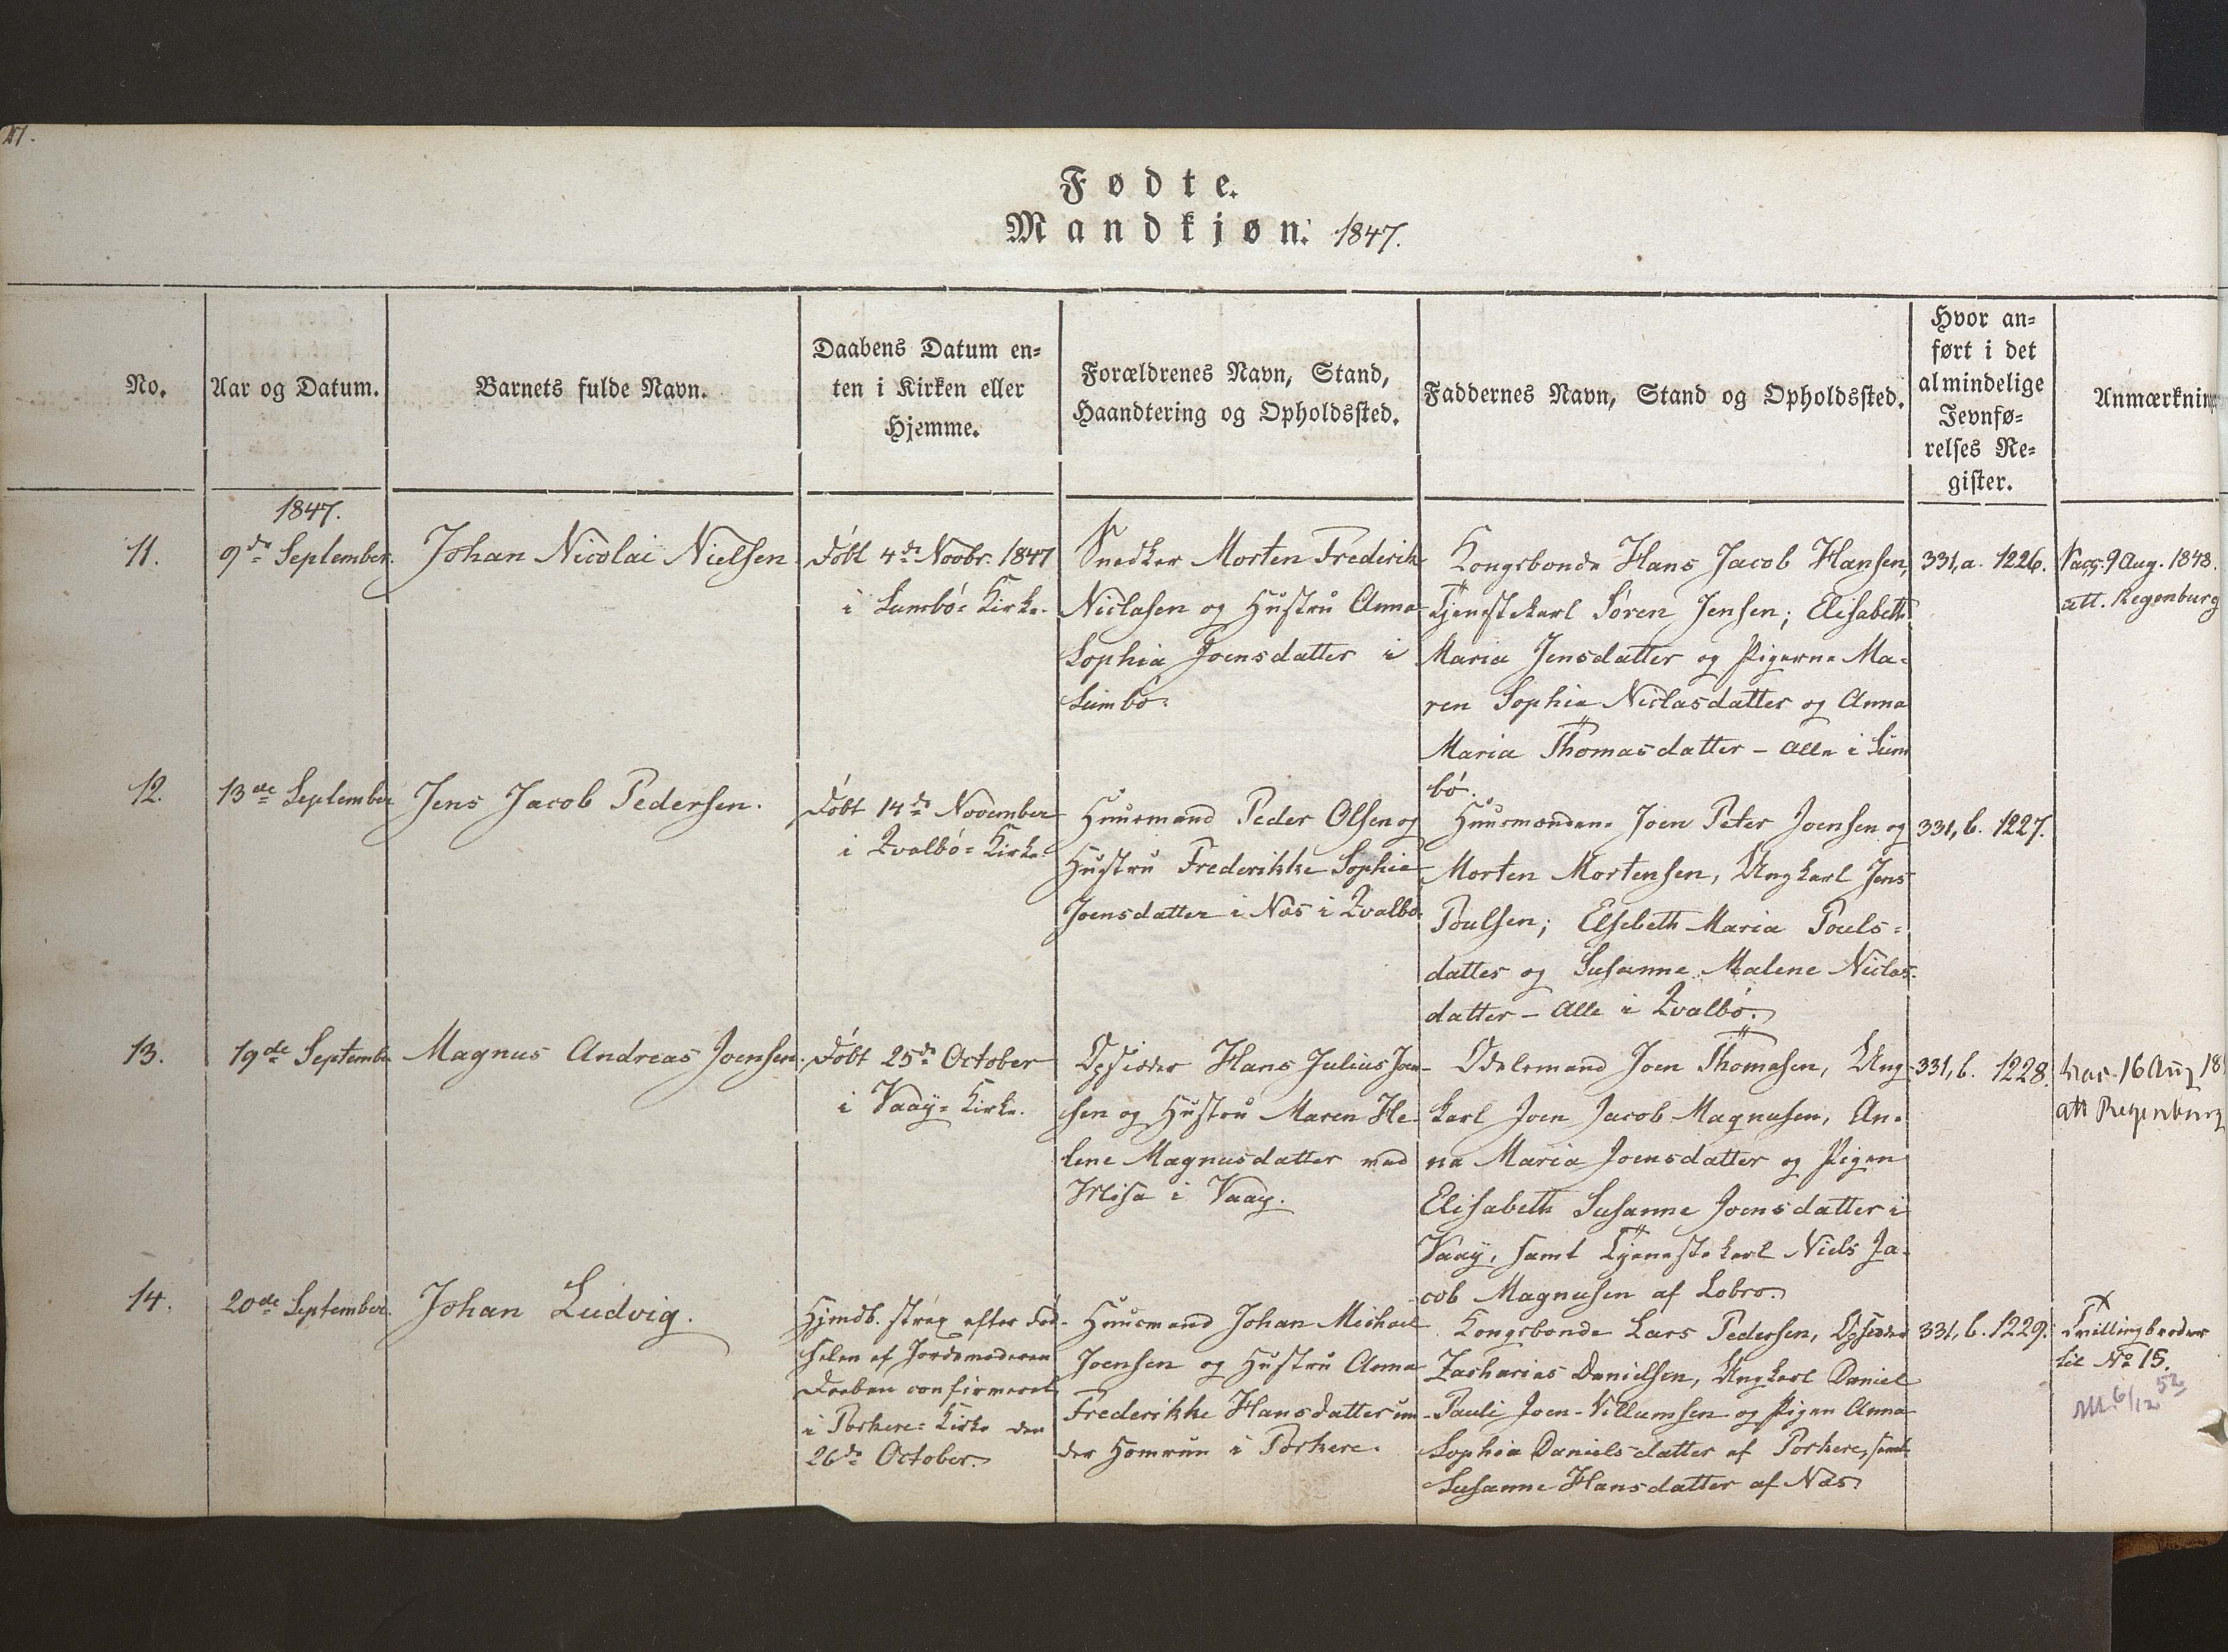 27.
Fødte.
Mandkjøn. 1847.
No.
Aar og Datum.
Barnets fulde Navn.
Daabens Datum en=
ten i Kirken eller
Hjemme.
Forældrenes Navn, Stand,
Haandtering og Opholdssted.
Faddernes Navn, Stand og Opholdssted.
Hvor an=
ført i det
almindelige
Jevnfø=
relses Re=
gister.
Anmærkning
1847.
11.
9de September.
Johan Nicolai Nielsen
Døbt 4de Novbr. 1847
i Sumbø= Kirke.
Snedker Morten Frederik
Niclasen og Hustru Anna
Sophia Joensdatter i
Sumbø.
Kongsbonde Hans Jacob Hansen,
Tjenestekarl Søren Jensen; Elisabeth
Maria Jensdatter og Pigerne Ma=
ren Sophia Niclasdatter og Anna
Maria Thomasdatter - Alle i Sum
bø.
331,a. 1226.
Vacc. 9 Aug. 1848.
att. Regenburg
12.
13de September
Jens Jacob Pedersen.
Døbt 14de November
i Qvalbø= Kirke.
Huusmand Peder Olsen og
Hustru Frederikke Sophia
Joensdatter i Næs i Qvalbø.
Huusmændene Joen Peter Joensen og
Morten Mortensen, Ungkarl Jens
Poulsen; Elsebeth Maria Pouls=
datter og Susanne Malene Niclas=
datter - Alle i Qvalbø.
331, b. 1227.
13.
19de Septembr
Magnus Andreas Joensen.
Døbt 25de October
i Vaay= Kirke.
Opsidder Hans Julius Joen-
sen og Hustru Maren He-
lene Magnusdatter ved
i Vaay.
Odelsmand Joen Thomasen, Ung-
karl Joen Jacob Magnusen, An-
na Maria Joensdatter og Pigen
Elisabeth Susanne Joensdatter i
Vaay, samt Tjenestekarl Niels Ja-
cob Magnusen af Lobro.
331, b. 1228.
Vac 16 Aug 18
att Regenburg
14.
20de September.
Johan Ludvig.
Hjmdb. strax efter Fød-
selen af Jordemoderen
Daaben confirmeret
i Porkere= Kirke den
26de October.
Huusmand Johan Michael
Joensen og Hustru Anna
Frederikke Hansdatter un
der Homrun i Porkere.
Kongsbonde Lars Pedersen, Opsidder
Zacharias Danielsen, Ungkarl Daniel
Pauli Joen-Villumsen og Pigen Anna
Sophia Danielsdatter af Porkere, samt
Susanne Hansdatter af Næs
331, b. 1229.
Tvillingbroder
til No 15.
6/12 52